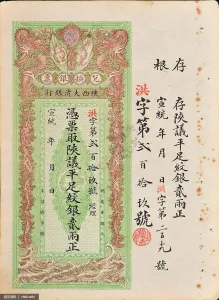 存根
存陝議平足紋銀貳兩正
宣統 年 月 日洪字第二百十九號
洪字第貳百拾玖號
兌換銀票
陝西大清銀行
洪字第貳百拾玖號 經理
憑票取陝議平足紋銀貳兩正
宣統 年 月 日